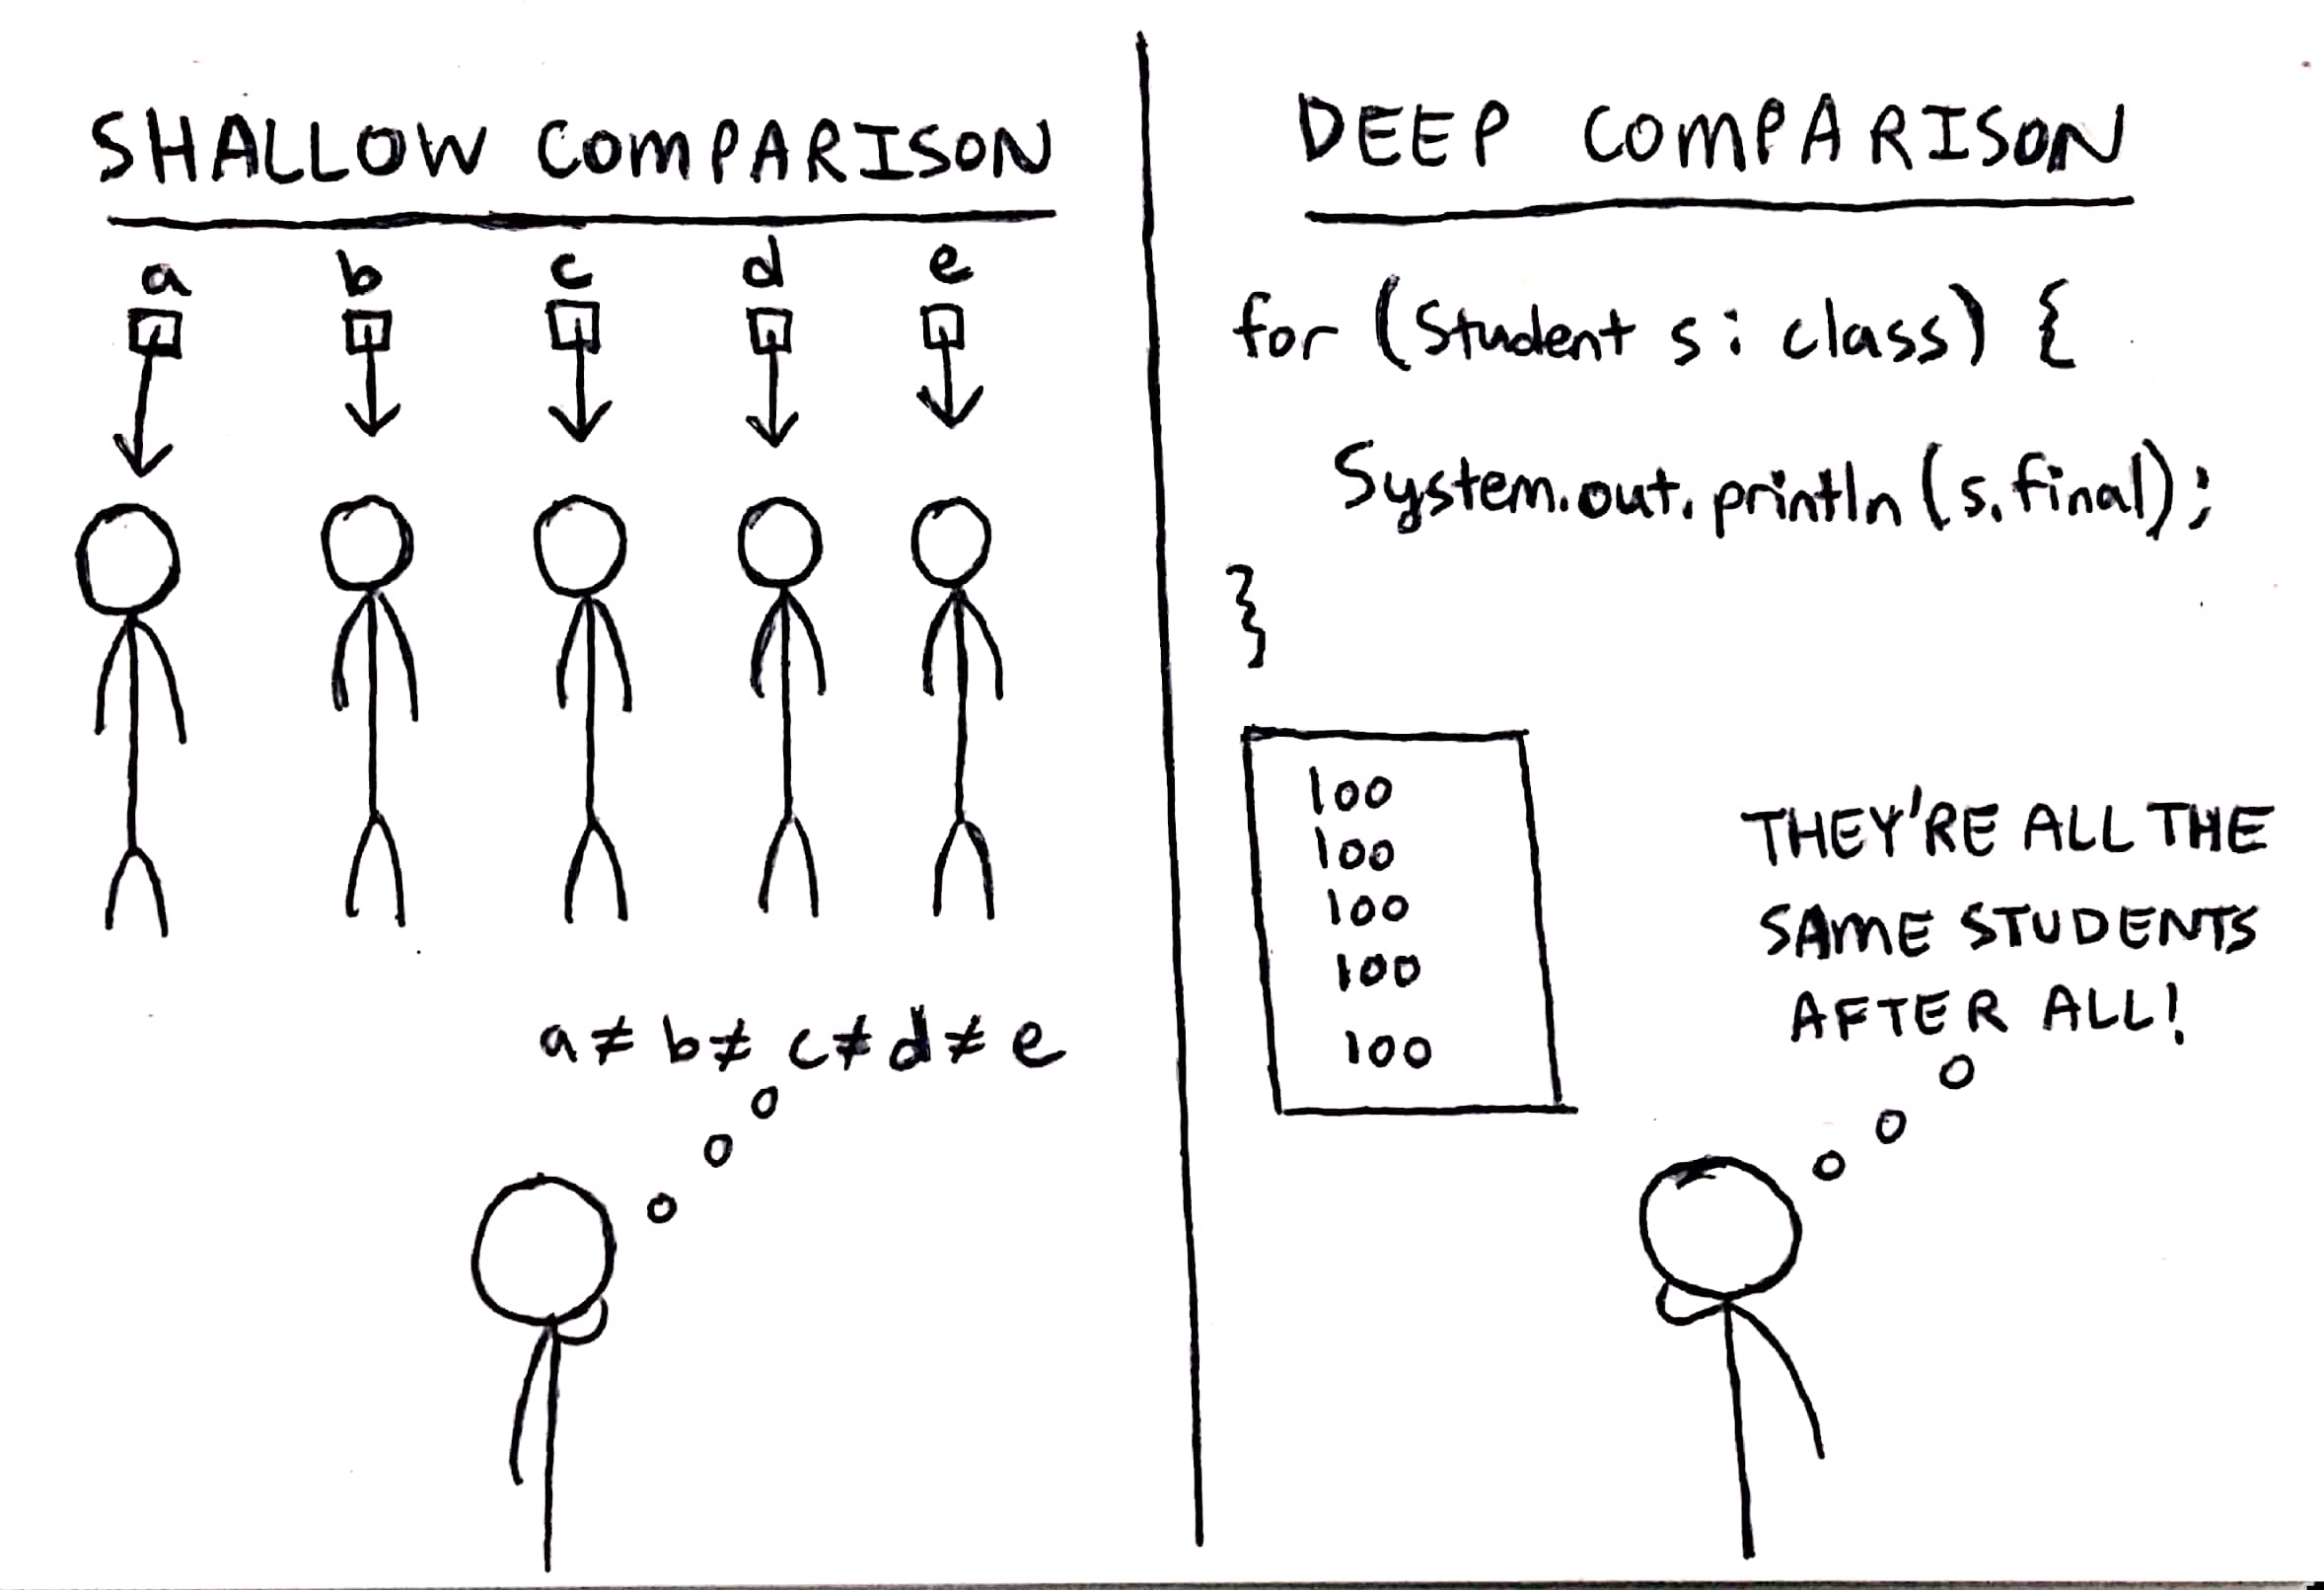 SHALLOW COMPARISON
a b c d e
a ≠ b ≠ c ≠ d ≠ e
DEEP COMPARISON
for (Student s : class) {
System.out.println (s.final);
}
100
100
100
100
100
THEY'RE ALL THE
SAME STUDENTS
AFTER ALL!